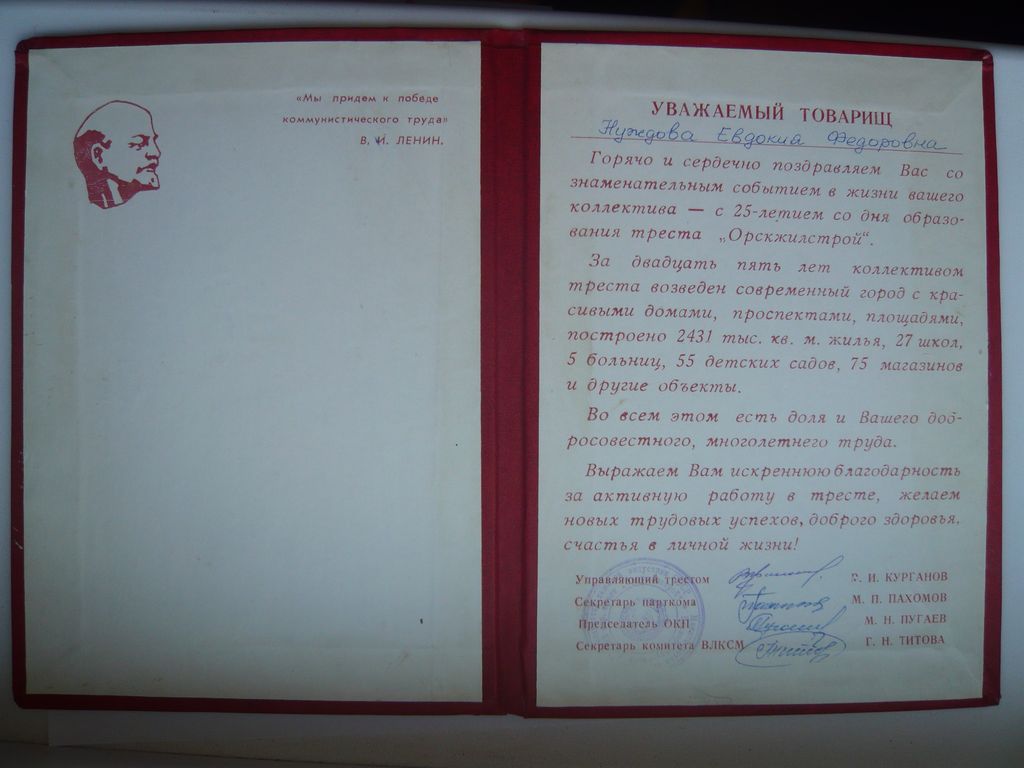 «Мы придем к победе
коммунистического труда»
В. И. ЛЕНИН.
УВАЖАЕМЫЙ ТОВАРИЩ
Нуждова Евдокия Федоровна
Горячо и сердечно поздравляем Вас со
знаменательным событием в жизни вашего
коллектива — с 25-летием со дня образо-
вания треста „Орскжилстрой“.
За двадцать пять лет коллективом
треста возведен современный город с кра-
сивыми домами, проспектами, площадями,
построено 2431 тыс. кв. м. жилья, 27 школ,
5 больниц, 55 детских садов, 75 магазинов
и другие объекты.
Во всем этом есть доля и Вашего доб-
росовестного, многолетнего труда.
Выражаем Вам искреннюю благодарность
за активную работу в тресте, желаем
новых трудовых успехов, доброго здоровья,
счастья в личной жизни!
Управляющий трестом И. КУРГАНОВ
Секретарь парткома М. П. ПАХОМОВ
Председатель ОКП М. Н. ПУГАЕВ
Секретарь комитета ВЛКСМ Г. Н. ТИТОВА